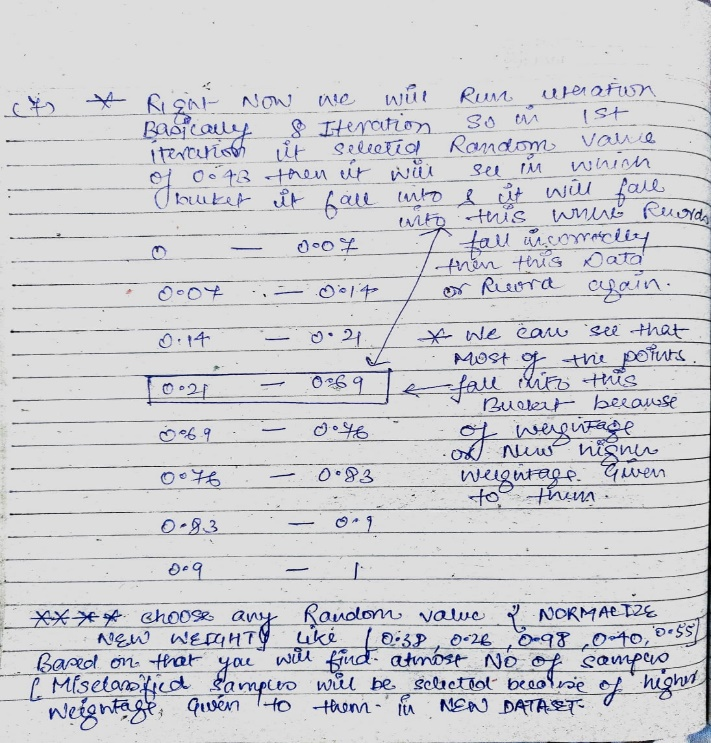 (7) * Right Now we will Run iteration
Basically 8 Iteration so in 1st
iteration it selected Random value
of 0.43 then it will see in which
bucket it fall into & it will fall
into this where Records
0 — 0.07 fall incorrectly
then this Data
0.07 — 0.14 or Record again.
0.14 — 0.21 * We can see that
Most of the points
0.21 — 0.69 fall into this
Bucket because
0.69 — 0.76 of weightage
or New higher
0.76 — 0.83 weightage Given
to them.
0.83 — 0.9
0.9 — 1
**** choose any Random value & NORMALIZE
NEW WEIGHTS Like [0.38, 0.26, 0.98, 0.40, 0.55]
Based on that you will find atmost No of samples
[Misclassified samples will be selected because of higher
weightage given to them in NEW DATASET.